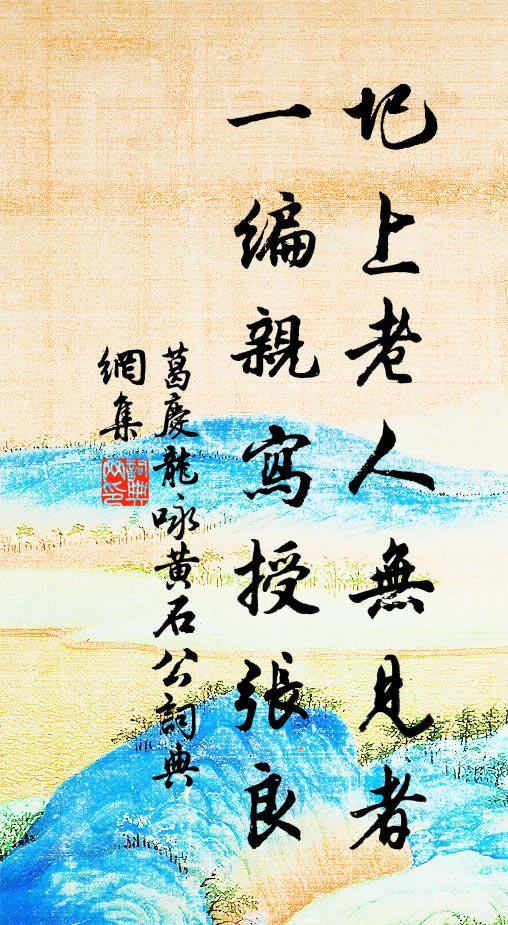 圯上老人無見者
一編親寫授張良
葛慶龍咏黄石公詞典
網集
詞典
网印